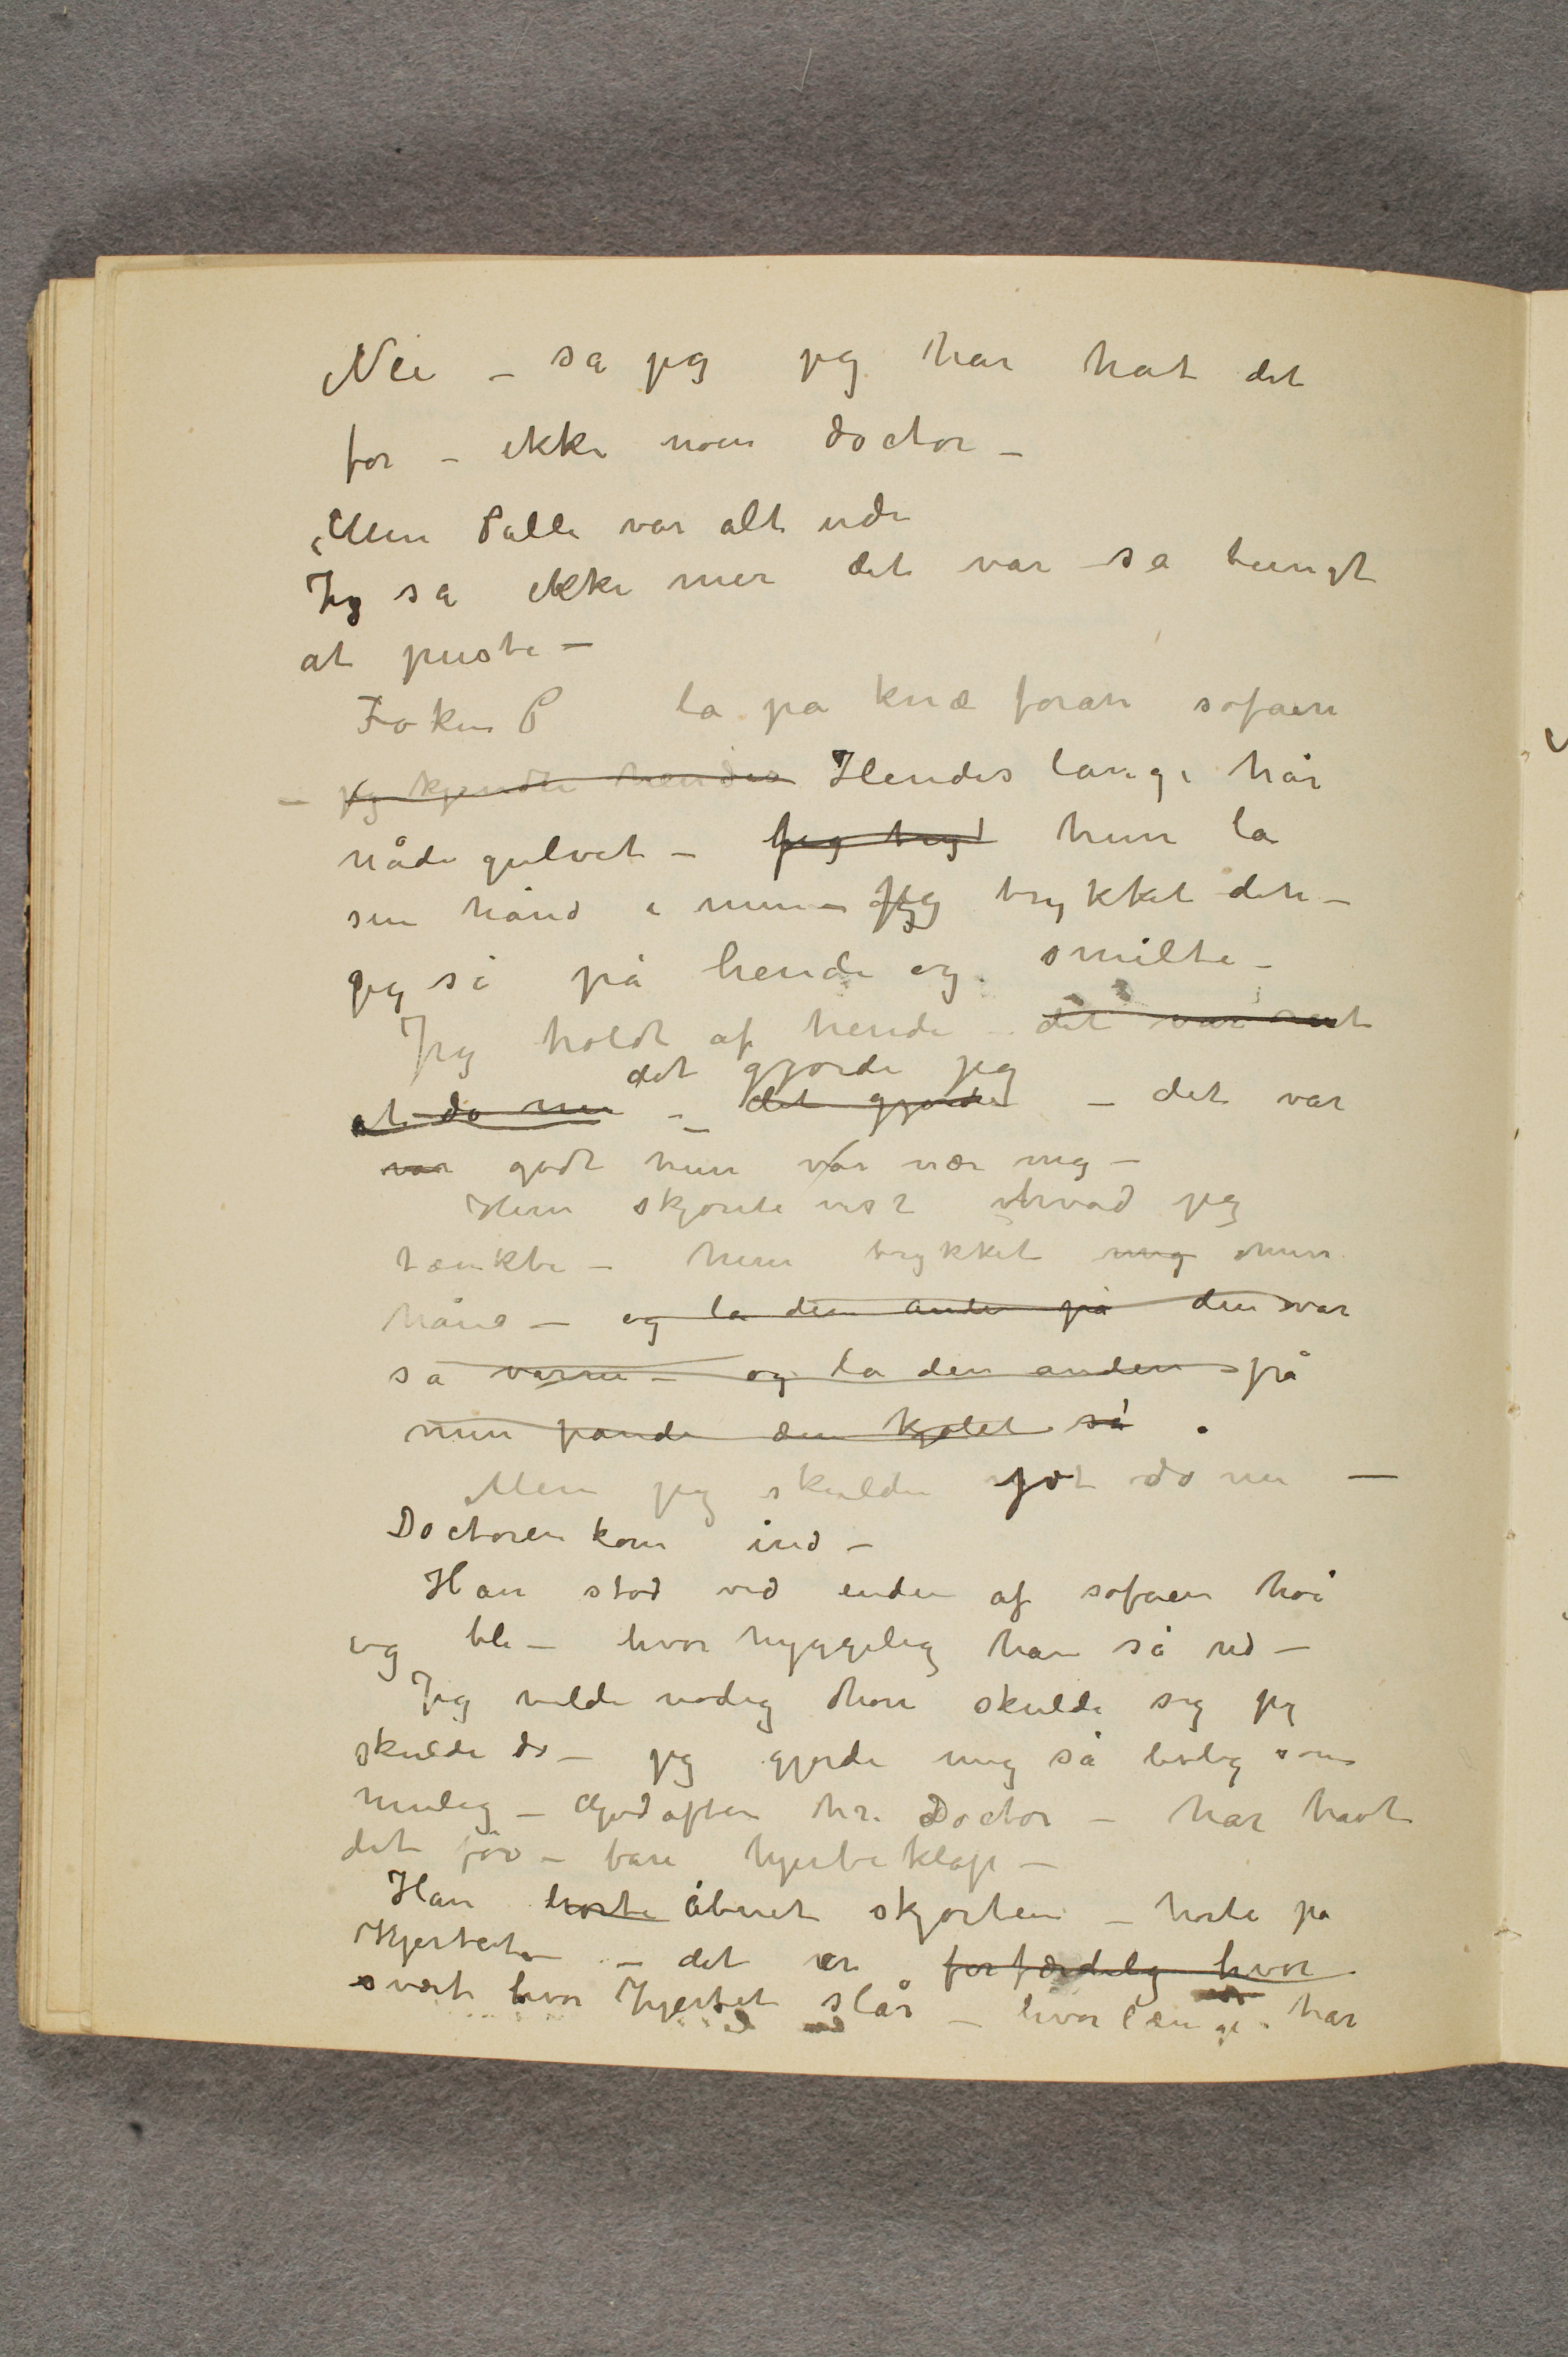 Nei – sa jeg jeg har hat det
før – ikke noen doctor –
Men Palle var alt ude
Jeg sa ikke mer det var så tungt
at puste –
Frøken P la på knæ foran sofaen
– jeg kjendte hendes Hendes lange hår
nåde gulvet – hun la
sin hånd i min – Jeg trykket den –
jeg så på hende og smilte –
Jeg holdt af hende – det var rart
det gjorde jeg
at dø nu – det gjorde – det var
var godt hun var nær mig –
Hun skjønte vist hvad jeg
tænkte – hun trykket mig min
hånd – og la den anden på den var
så varm – og la den anden på
min pande den kjølet så .
Men jeg skulde jo dø nu –
Doctoren kom ind –
Han stod ved enden af sofaen høi
og ble – hvor hyggelig han så ud –
Jeg vilde nødig han skulde sig jeg
skulde dø – jeg gjorde mig så livlig som
mulig – God aften hr. Doctor – har havt
det før – bare hjerteklap –
Han hørte åbnet skjorten – hørte på
Hjertet – det er forfærdelig hvor
svært hvor Hjertet slår – hvor længe har